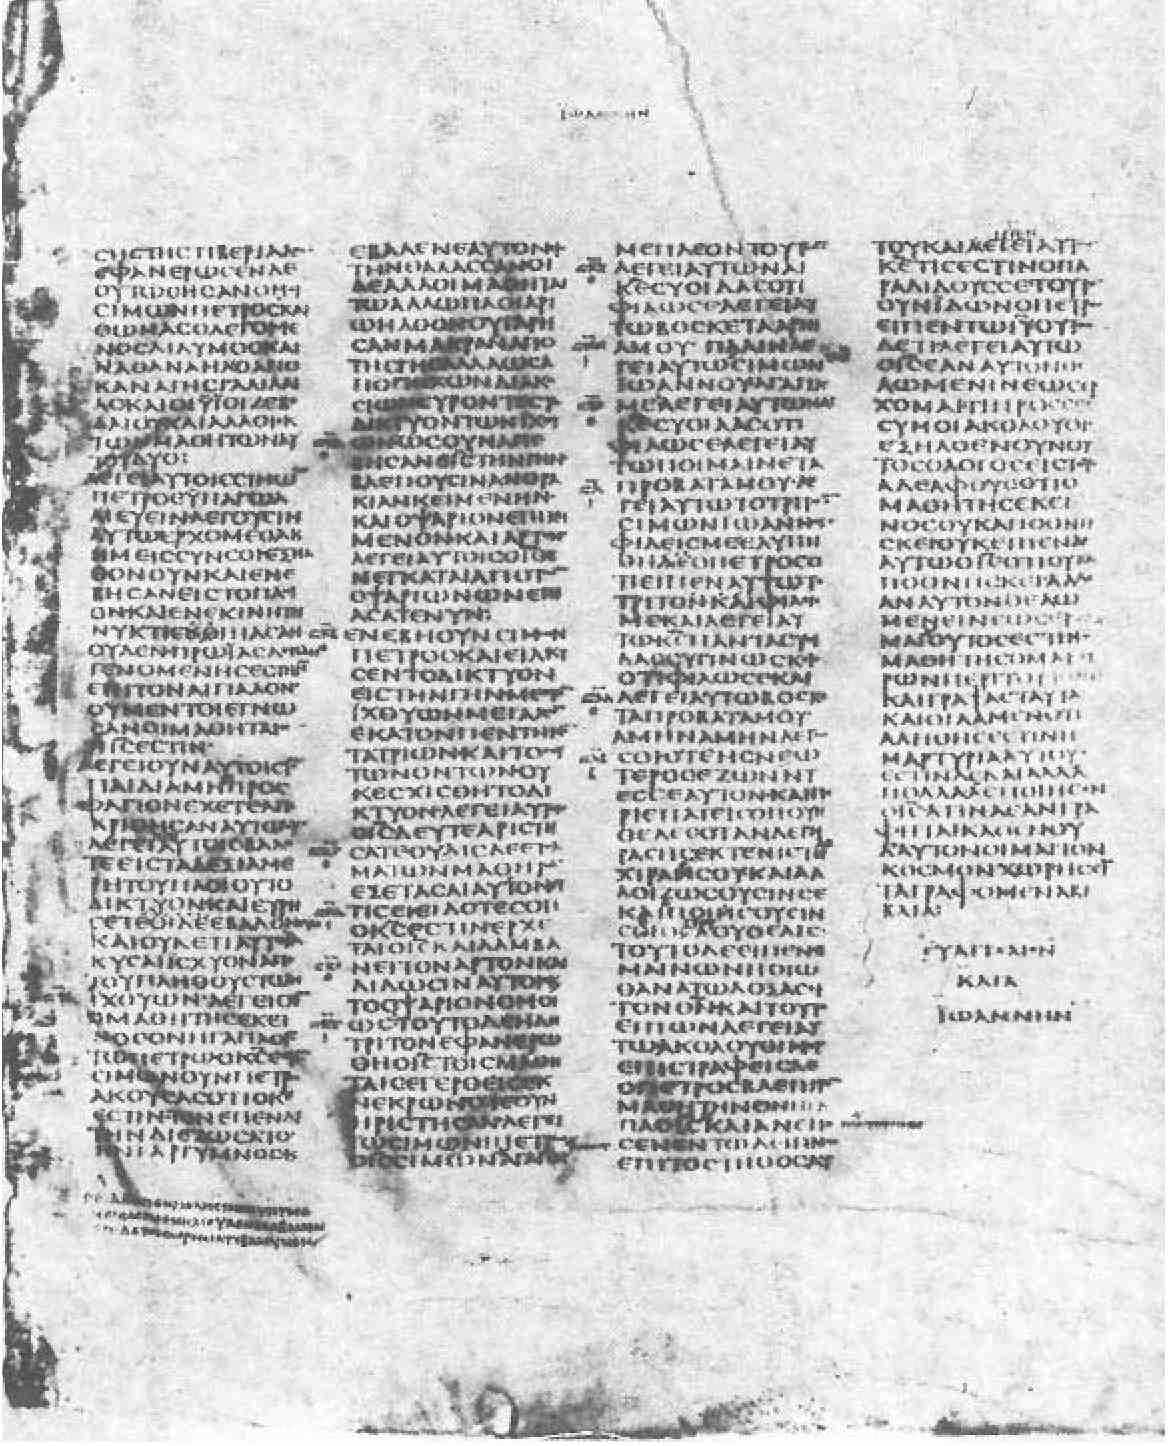 ΙΩΑΝΝΗΝ
ϹΗϹΤΗϹΤΙΒΕΡΙΑΔΟϹ
ΕΦΑΝΕΡΩϹΕΝΔΕ
ΟΥΤΩϹΗϹΑΝΟΜΟΥ
ϹΙΜΩΝΠΕΤΡΟϹΚΑΙ
ΘΩΜΑϹΟΛΕΓΟΜΕ
ΝΟϹΔΙΔΥΜΟϹΚΑΙ
ΝΑΘΑΝΑΗΛΟΑΠΟ
ΚΑΝΑΤΗϹΓΑΛΙΛΑΙ
ΑϹΚΑΙΟΙΫΙΟΙΖΕΒΕ
ΔΑΙΟΥΚΑΙΑΛΛΟΙΕΚ
ΤΩΝΜΑΘΗΤΩΝΑΥ
ΤΟΥΔΥΟ
ΛΕΓΕΙΑΥΤΟΙϹϹΙΜΩ
ΠΕΤΡΟϹΫΠΑΓΩΑ
ΛΙΕΥΕΙΝΛΕΓΟΥϹΙΝ
ΑΥΤΩΕΡΧΟΜΕΘΑΚ
ΗΜΕΙϹϹΥΝϹΟΙΕΞΗΛ
ΘΟΝΟΥΝΚΑΙΕΝΕ
ΒΗϹΑΝΕΙϹΤΟΠΛΟΙ
ΟΝΚΑΙΕΝΕΚΙΝΗΤΗ
ΝΥΚΤΙΕΚΟΠΙΑϹΑΝ
ΟΥΔΕΝΠΡΩΪΑϹΔΕ
ΓΕΝΟΜΕΝΗϹΕϹΤΗ
ΕΠΙΤΟΝΑΙΓΙΑΛΟΝ
ΟΥΜΕΝΤΟΙΕΓΝΩ
ϹΑΝΟΙΜΑΘΗΤΑΙ
ΙϹΕϹΤΙΝ
ΛΕΓΕΙΟΥΝΑΥΤΟΙϹ
ΠΑΙΔΙΑΜΗΠΡΟϹ
ΦΑΓΙΟΝΕΧΕΤΕΑΠΕ
ΚΡΙΘΗϹΑΝΑΥΤΩΟΥ
ΛΕΓΕΙΑΥΤΟΙϹΒΑΛΕ
ΤΕΕΙϹΤΑΔΕΞΙΑΜΕ
ΡΗΤΟΥΠΛΟΙΟΥΤΟ
ΔΙΚΤΥΟΝΚΑΙΕΥΡΗ
ϹΕΤΕΟΙΔΕΕΒΑΛΟΝ
ΚΑΙΟΥΚΕΤΙΑΥΤΟΕΛ
ΚΥϹΑΙΪϹΧΥΟΝΑΠΟ
ΤΟΥΠΛΗΘΟΥϹΤΩΝ
ΪΧΘΥΩΝΛΕΓΕΙΟΥ
ΟΜΑΘΗΤΗϹΕΚΕΙ
ΝΟϹΟΝΗΓΑΠΑΟΙϹ
ΤΩΠΕΤΡΩΟΚϹΕϹΤΙ
ϹΙΜΩΝΟΥΝΠΕΤΡΟϹ
ΑΚΟΥϹΑϹΟΤΙΟΚϹ
ΕϹΤΙΝΤΟΝΕΠΕΝΔΥ
ΤΗΝΔΙΕΖΩϹΑΤΟ
ΗΝΓΑΡΓΥΜΝΟϹΚ
ΕΒΑΛΕΝΕΑΥΤΟΝΕΙϹ
ΤΗΝΘΑΛΑϹϹΑΝΟΙ
ΔΕΑΛΛΟΙΜΑΘΗΤΑΙ
ΤΩΑΛΛΩΠΛΟΙΑΡΙ
ΩΗΛΘΟΝΟΥΓΑΡΗ
ϹΑΝΜΑΚΡΑΝΑΠΟ
ΤΗϹΓΗϹΑΛΛΑΩϹΑ
ΠΟΠΗΧΩΝΔΙΑΚΟ
ϹΙΩΝϹΥΡΟΝΤΕϹΤΟ
ΔΙΚΤΥΟΝΤΩΝΪΧΘΥ
ΩΝΩϹΟΥΝΑΠΕ
ΒΗϹΑΝΕΙϹΤΗΝΓΗΝ
ΒΛΕΠΟΥϹΙΝΑΝΘΡΑ
ΚΙΑΝΚΕΙΜΕΝΗΝ
ΚΑΙΟΨΑΡΙΟΝΕΠΙΚΕΙ
ΜΕΝΟΝΚΑΙΑΡΤΟΝ
ΛΕΓΕΙΑΥΤΟΙϹΟΙϹ
ΕΝΕΓΚΑΤΑΙΑΠΟΤΩΝ
ΟΨΑΡΙΩΝΩΝΕΠΙ
ΑϹΑΤΕΝΥΝ
ΕΝΕΒΗΟΥΝϹΙΜΩΝ
ΠΕΤΡΟϹΚΑΙΕΙΛΚΥ
ϹΕΝΤΟΔΙΚΤΥΟΝ
ΕΙϹΤΗΝΓΗΝΜΕϹΤΟ
ΪΧΘΥΩΝΜΕΓΑΛΩΝ
ΕΚΑΤΟΝΠΕΝΤΗΚΟ
ΤΑΤΡΙΩΝΚΑΙΤΟϹΟΥ
ΤΩΝΟΝΤΩΝΟΥ
ΚΕϹΧΙϹΘΗΤΟΔΙ
ΚΤΥΟΝΛΕΓΕΙΑΥΤΟΙϹ
ΟΙϹΔΕΥΤΕΑΡΙϹΤΗ
ϹΑΤΕΟΥΔΙϹΔΕΕΤΟΛ
ΜΑΤΩΝΜΑΘΗΤΩΝ
ΕΞΕΤΑϹΑΙΑΥΤΟΝϹΥ
ΤΙϹΕΙΕΙΔΟΤΕϹΟΤΙ
ΟΚϹΕϹΤΙΝΕΡΧΕ
ΤΑΙΟΙϹΚΑΙΛΑΜΒΑ
ΝΕΙΤΟΝΑΡΤΟΝΚΑΙ
ΔΙΔΩϹΙΝΑΥΤΟΙϹ
ΤΟΟΨΑΡΙΟΝΟΜΟΙ
ΩϹΤΟΥΤΟΔΕΗΔΗ
ΤΡΙΤΟΝΕΦΑΝΕΡΩ
ΘΗΟΙϹΤΟΙϹΜΑΘΗ
ΤΑΙϹΕΓΕΡΘΕΙϹΕΚ
ΝΕΚΡΩΝΟΤΕΟΥΝ
ΗΡΙϹΤΗϹΑΝΛΕΓΕΙ
ΤΩϹΙΜΩΝΙΠΕΤΡΩ
ΟΙϹϹΙΜΩΝΑΓΑΠΑϹ
ΜΕΠΛΕΟΝΤΟΥΤΩΝ
ΛΕΓΕΙΑΥΤΩΝΑΙ
ΚΕϹΥΟΙΔΑϹΟΤΙ
ΦΙΛΩϹΕΛΕΓΕΙΑΥ
ΤΩΒΟϹΚΕΤΑΑΡΝΙ
ΑΜΟΥΠΑΛΙΝΛΕ
ΓΕΙΑΥΤΩϹΙΜΩΝ
ΙΩΑΝΝΟΥΑΓΑΠΑϹ
ΜΕΛΕΓΕΙΑΥΤΩΝΑΙ
ΚΕϹΥΟΙΔΑϹΟΤΙ
ΦΙΛΩϹΕΛΕΓΕΙΑΥ
ΤΩΠΟΙΜΑΙΝΕΤΑ
ΠΡΟΒΑΤΑΜΟΥΛΕ
ΓΕΙΑΥΤΩΤΟΤΡΙΤΟΝ
ϹΙΜΩΝΙΩΑΝΝΟΥ
ΦΙΛΕΙϹΜΕΕΛΥΠΗ
ΘΗΔΕΟΠΕΤΡΟϹΟ
ΤΙΕΙΠΕΝΑΥΤΩΤΟ
ΤΡΙΤΟΝΚΑΙΦΙΛΕΙϹ
ΜΕΚΑΙΛΕΓΕΙΑΥ
ΤΩΚΕΠΑΝΤΑϹΥ
ΟΙΔΑϹϹΥΓΙΝΩϹΚΕΙϹ
ΟΤΙΦΙΛΩϹΕΚΑΙ
ΛΕΓΕΙΑΥΤΩΒΟϹΚΕ
ΤΑΠΡΟΒΑΤΑΜΟΥ
ΑΜΗΝΑΜΗΝΛΕΓΩ
ϹΟΙΟΤΕΗϹΝΕΩ
ΤΕΡΟϹΕΖΩΝΝΥ
ΕϹϹΕΑΥΤΟΝΚΑΙΠΕ
ΡΙΕΠΑΤΕΙϹΟΠΟΥ
ΗΘΕΛΕϹΟΤΑΝΔΕΓΗ
ΡΑϹΗϹΕΚΤΕΝΙϹΤΗ
ΧΙΡΑϹΟΥΚΑΙΑΛ
ΛΟΙΖΩϹΟΥϹΙΝϹΕ
ΤΟΥΤΟΔΕΕΙΠΕΝϹΗ
ΜΑΙΝΩΝΠΟΙΩ
ΘΑΝΑΤΩΔΟΞΑϹΕΙ
ΤΟΝΘΝΚΑΙΤΟΥΤΟ
ΕΙΠΩΝΛΕΓΕΙΑΥ
ΤΩΑΚΟΛΟΥΘΙΜΟΙ
ΕΠΙϹΤΡΑΦΕΙϹΔΕ
ΟΠΕΤΡΟϹΒΛΕΠΙΤΟΝ
ΜΑΘΗΤΗΝΟΝΗΓΑ
ΠΑΟΙϹΚΑΙΑΝΕΠΕ
ϹΕΝΕΝΤΩΔΙΠΝΩ
ΕΠΙΤΟϹΤΗΘΟϹΑΥ
ΤΟΥΚΑΙΛΕΓΕΙΑΥΤΩ
ΚΕΤΙϹΕϹΤΙΝΟΠΑ
ΡΑΔΙΔΟΥϹϹΕΤΟΥΤΟ
ΟΥΝΪΔΩΝΟΠΕΤΡΟϹ
ΕΙΠΕΝΤΩΙΥΟΥΤΟϹ
ΔΕΤΙΛΕΓΕΙΑΥΤΩ
ΟΙϹΕΑΝΑΥΤΟΝΘΕ
ΛΩΜΕΝΙΝΕΩϹΕΡ
ΧΟΜΑΙΤΙΠΡΟϹϹΕ
ϹΥΜΟΙΑΚΟΛΟΥΘΕΙ
ΕΞΗΛΘΕΝΟΥΝΟΥ
ΤΟϹΟΛΟΓΟϹΕΙϹΤΟΥϹ
ΑΔΕΛΦΟΥϹΟΤΙΟ
ΜΑΘΗΤΗϹΕΚΕΙ
ΝΟϹΟΥΚΑΠΟΘΝΗ
ϹΚΕΙΟΥΚΕΙΠΕΝΔΕ
ΑΥΤΩΟΙϹΟΤΙΟΥΚΑ
ΠΟΘΝΗϹΚΕΙΑΛΛΕ
ΑΝΑΥΤΟΝΘΕΛΩ
ΜΕΝΕΙΝΕΩϹΕΡΧΟ
ΜΑΙΟΥΤΟϹΕϹΤΙΝΟ
ΜΑΘΗΤΗϹΟΜΑΡΤΥ
ΡΩΝΠΕΡΙΤΟΥΤΩΝ
ΚΑΙΓΡΑΨΑϹΤΑΥΤΑ
ΚΑΙΟΙΔΑΜΕΝΟΤΙ
ΑΛΗΘΗϹΕϹΤΙΝΗ
ΜΑΡΤΥΡΙΑΑΥΤΟΥ
ΕϹΤΙΝΔΕΚΑΙΑΛΛΑ
ΠΟΛΛΑΑΕΠΟΙΗϹΕΝ
ΟΙϹΑΤΙΝΑΕΑΝΓΡΑ
ΦΗΤΑΙΚΑΘΕΝΟΥ
ΔΑΥΤΟΝΟΙΜΑΙΤΟΝ
ΚΟϹΜΟΝΧΩΡΗϹΕΙ
ΤΑΓΡΑΦΟΜΕΝΑΒΙ
ΒΛΙΑ
ΕΥΑΓΓΕΛΙΟΝ
ΚΑΤΑ
ΙΩΑΝΝΗΝ